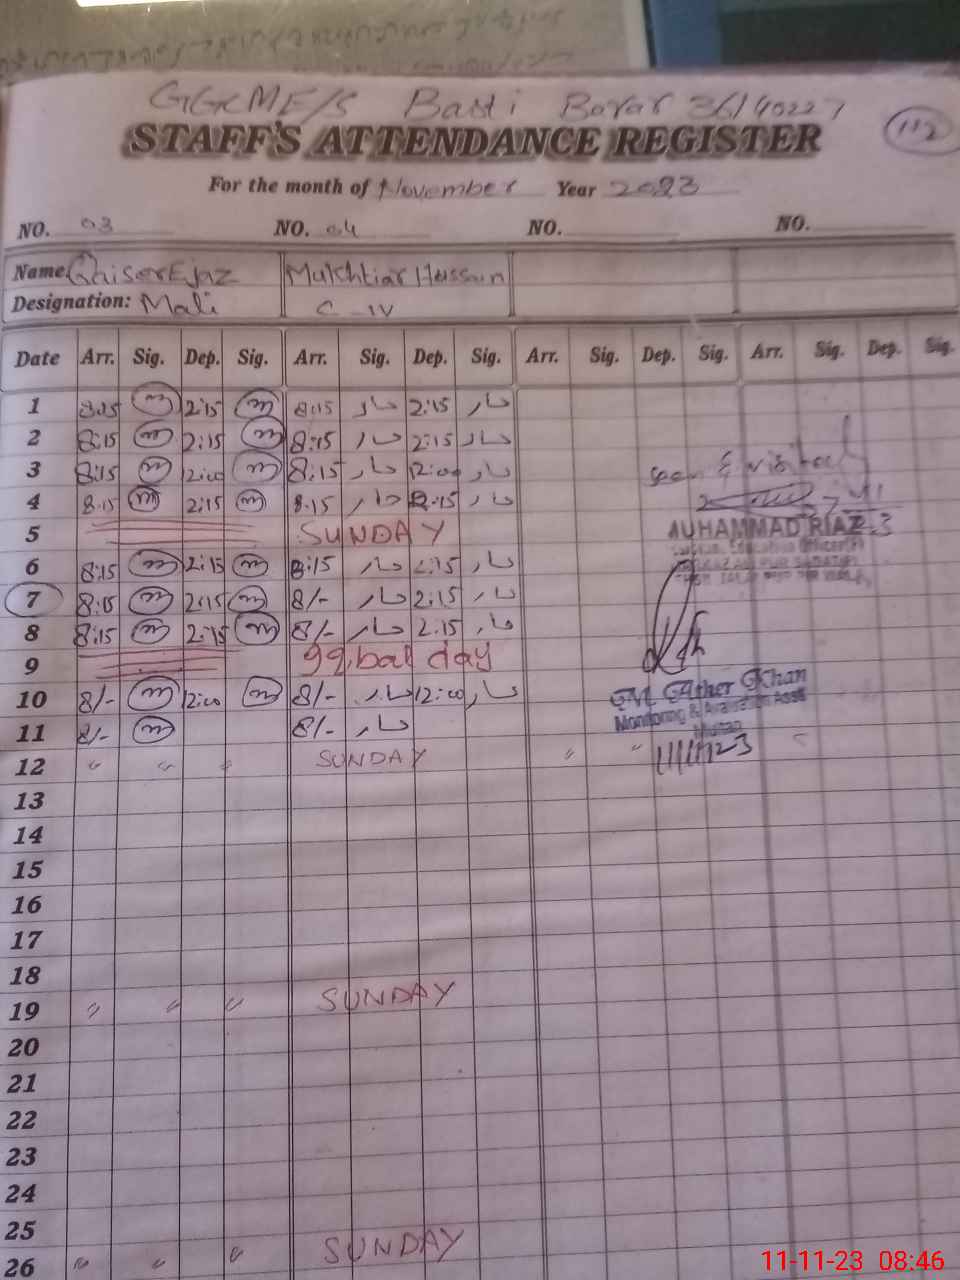 GGCME/S Basti Borar 36140227
112
STAFF'S ATTENDANCE REGISTER
For the month of November Year 2023
NO. 03 NO. 04 NO. NO.
Name: Qaiser Ejaz Mukhtiar Hussain
Designation: Mali C-IV
Date Arr. Sig. Dep. Sig. Arr. Sig. Dep. Sig. Arr. Sig. Dep. Sig. Arr. Sig. Dep. Sig.
1 8:15 2:15 8:15 2:15
2 8:15 2:15 8:15 2:15
3 8:15 12:00 8:15 12:00
4 8:15 2:15 8:15 2:15
5 SUNDAY
6 8:15 2:15 8:15 2:15
7 8:15 2:15 8/- 2:15
8 8:15 2:15 8/- 2:15
9 Iqbal day
10 8/- 12:00 8/- 12:00
11 8/- 8/-
12 " " " SUNDAY " "
13
14
15
16
17
18
19 " " " SUNDAY
20
21
22
23
24
25
26 " " " SUNDAY
Seen & visited
MUHAMMAD RIAZ
M Ather Khan
Monitoring & Evaluation Asstt
Multan
11/11/23
11-11-23 08:46